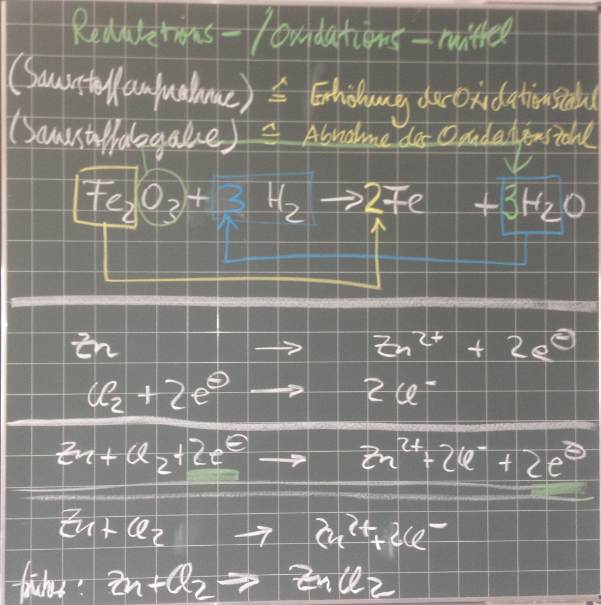 Reduktions-/Oxidations-mittel
(Sauerstoffaufnahme) ≙ Erhöhung der Oxidationszahl
(Sauerstoffabgabe) ≙ Abnahme der Oxidationszahl
Fe₂O₃ + 3 H₂ → 2Fe + 3H₂O
Zn → Zn²⁺ + 2e⊖
Cl₂ + 2e⊖ → 2Cl⁻
Zn + Cl₂ + 2e⊖ → Zn²⁺ + 2Cl⁻ + 2e⊖
Zn + Cl₂ → Zn²⁺ + 2Cl⁻
früher: Zn + Cl₂ → ZnCl₂